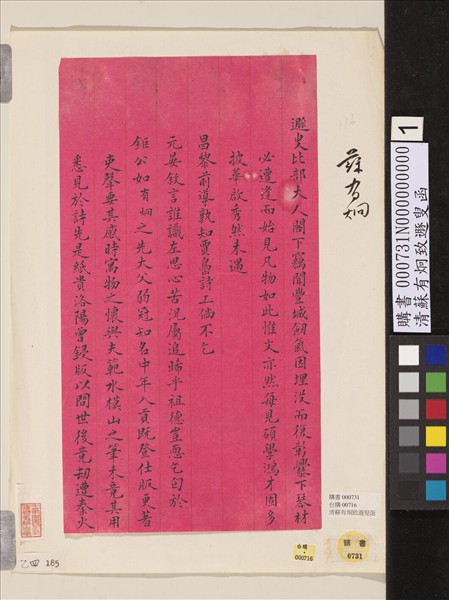 遯叟比部大人閣下竊聞豐城劒氣因埋沒而後彰爨下琴材
必遭逢而始見凡物如此惟文亦然每見碩學鴻才固多
披華啟秀然未遇
昌黎前導孰知賈島詩工倘不乞
元晏敘言誰識左思心苦況屬追晞乎祖德寔思乞句於
鉅公如有炯之先大父弱冠知名中年入貢既登仕版更著
吏聲要其感時寓物之懷與夫範水模山之筆未竟其用
悉見於詩先是紙貴洛陽曾鋟版以問世後竟劫遭秦火
蘇有炯
1
購書 000731N000000000
清蘇有炯致遯叟函
購書 000731
台購 00716
清蘇有炯致遯叟函
台購
000716
購書
0731
乙四 185